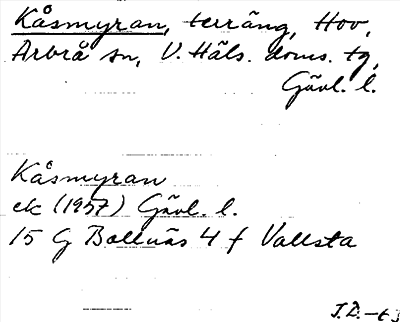 Kåsmyran, terräng, Hov,
Arbrå sn, V. Häls. doms. tg,
Gävl. l.
Kåsmyran
ek (1957) Gävl. l.
15 G Bollnäs 4 f Vallsta
J.D.-63